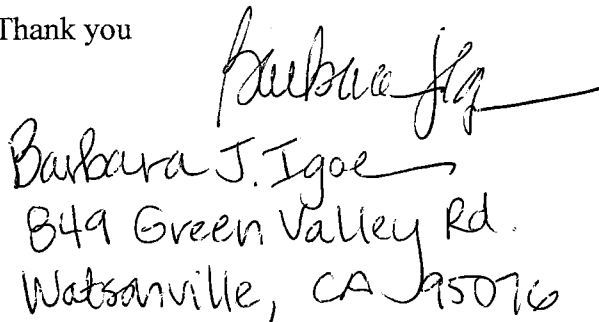 Thank you
Barbara J. Igoe
849 Green Valley Rd.
Watsonville, CA 95076